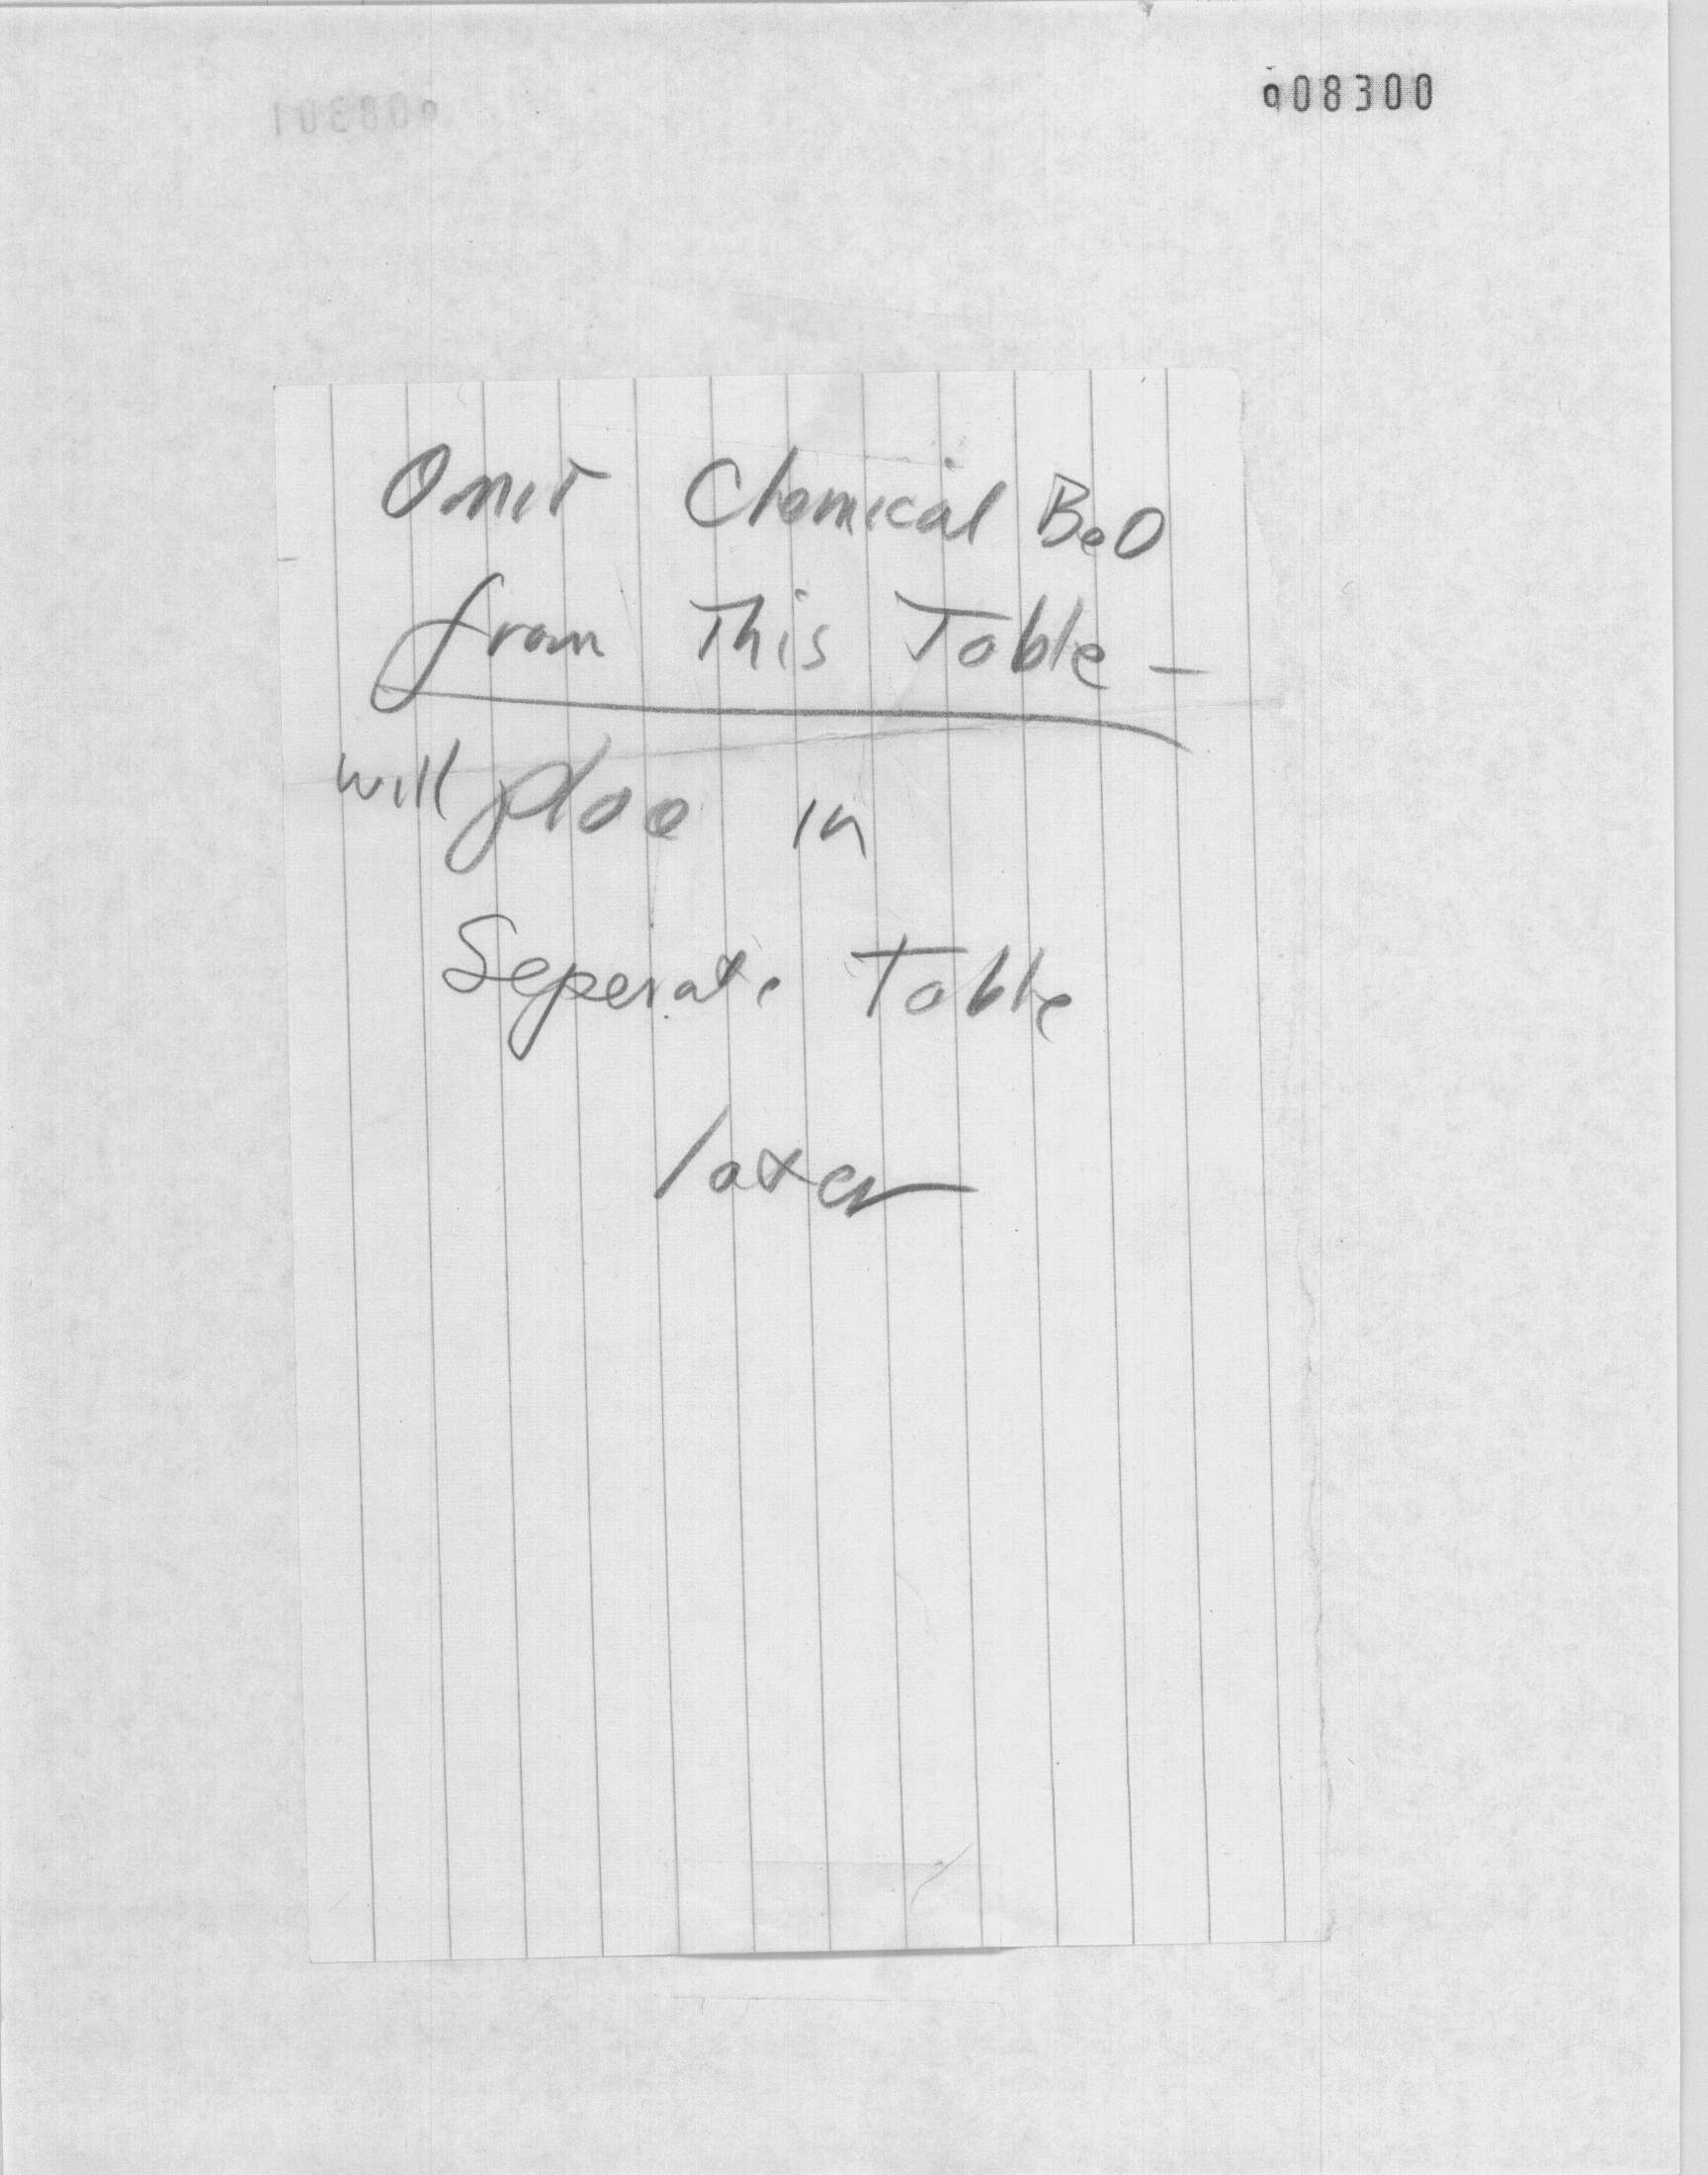 008300
Omit Chemical BeO
from This Table -
will
in
Seperate Table
later